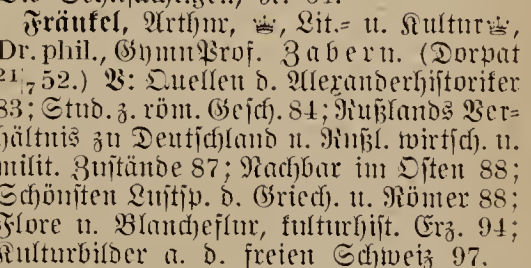 Fränkel, Arthur, ♕, Lit.= u. Kultur♕,
Dr. phil., GymnProf. Zabern. (Dorpat
21/7 52.) V: Quellen d. Alexanderhistoriker
83; Stud. z. röm. Gesch. 84; Rußlands Ver=
hältnis zu Deutschland u. Rußl. wirtsch. u.
milit. Zustände 87; Nachbar im Osten 88;
Schönsten Lustsp. d. Griech. u. Römer 88;
Flore u. Blancheflur, kulturhist. Erz. 94;
Kulturbilder a. d. freien Schweiz 97.